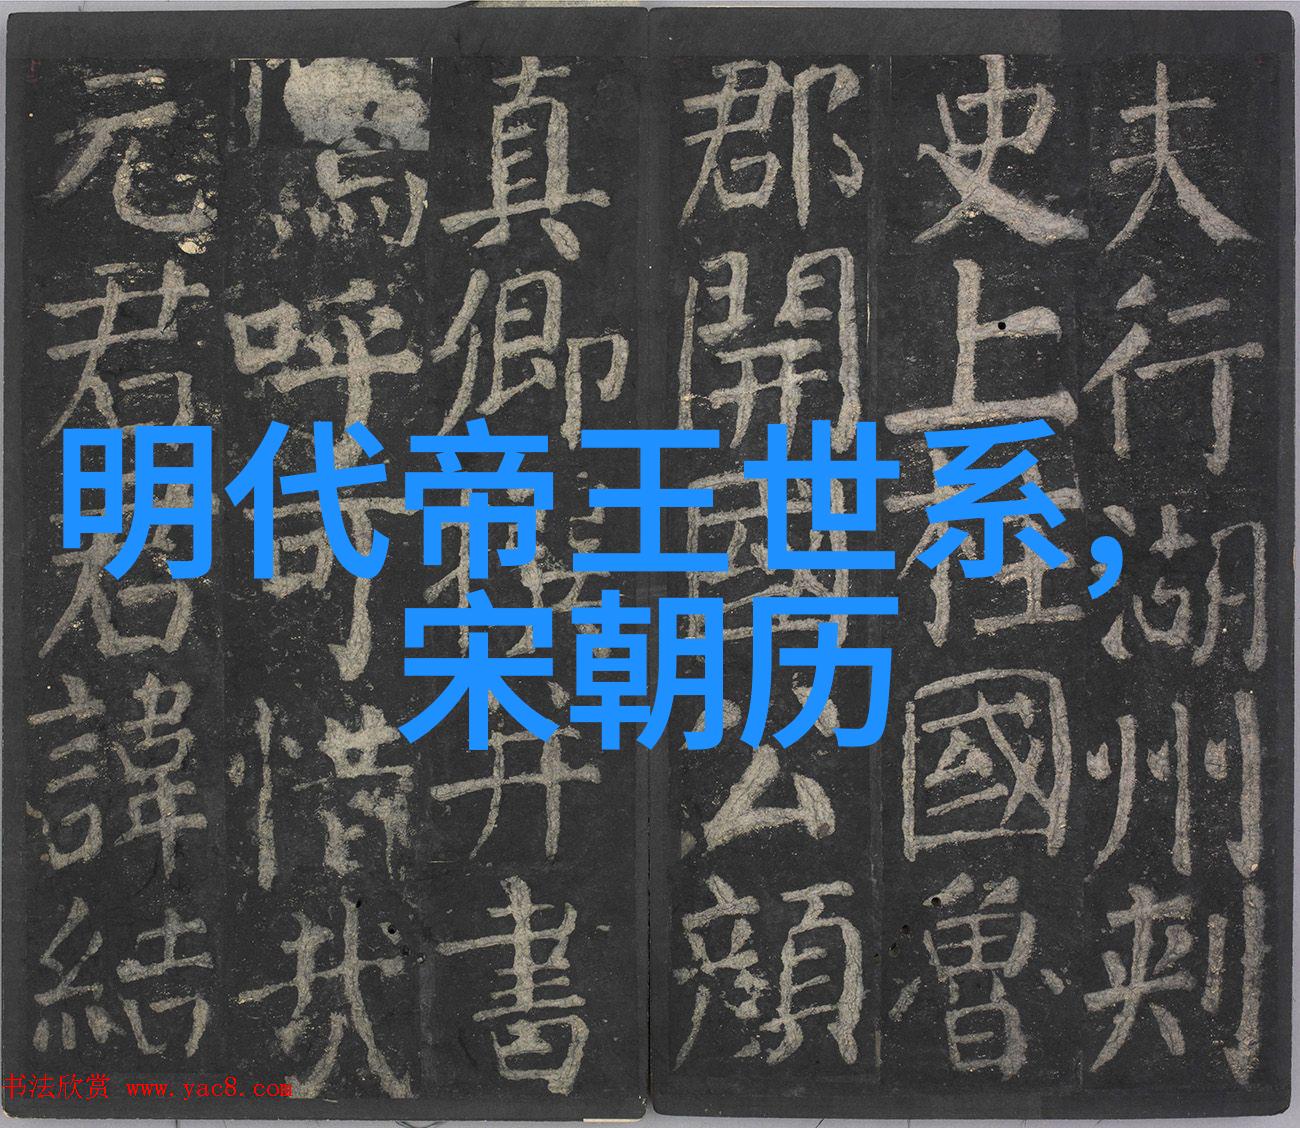 明代帝王世系,
宋朝历
夫行湖州刺
史上柱國魯
郡開國公顏
真卿撰并書
嗚呼可惜哉
元君君諱結
书法欣赏 www.yac8.com